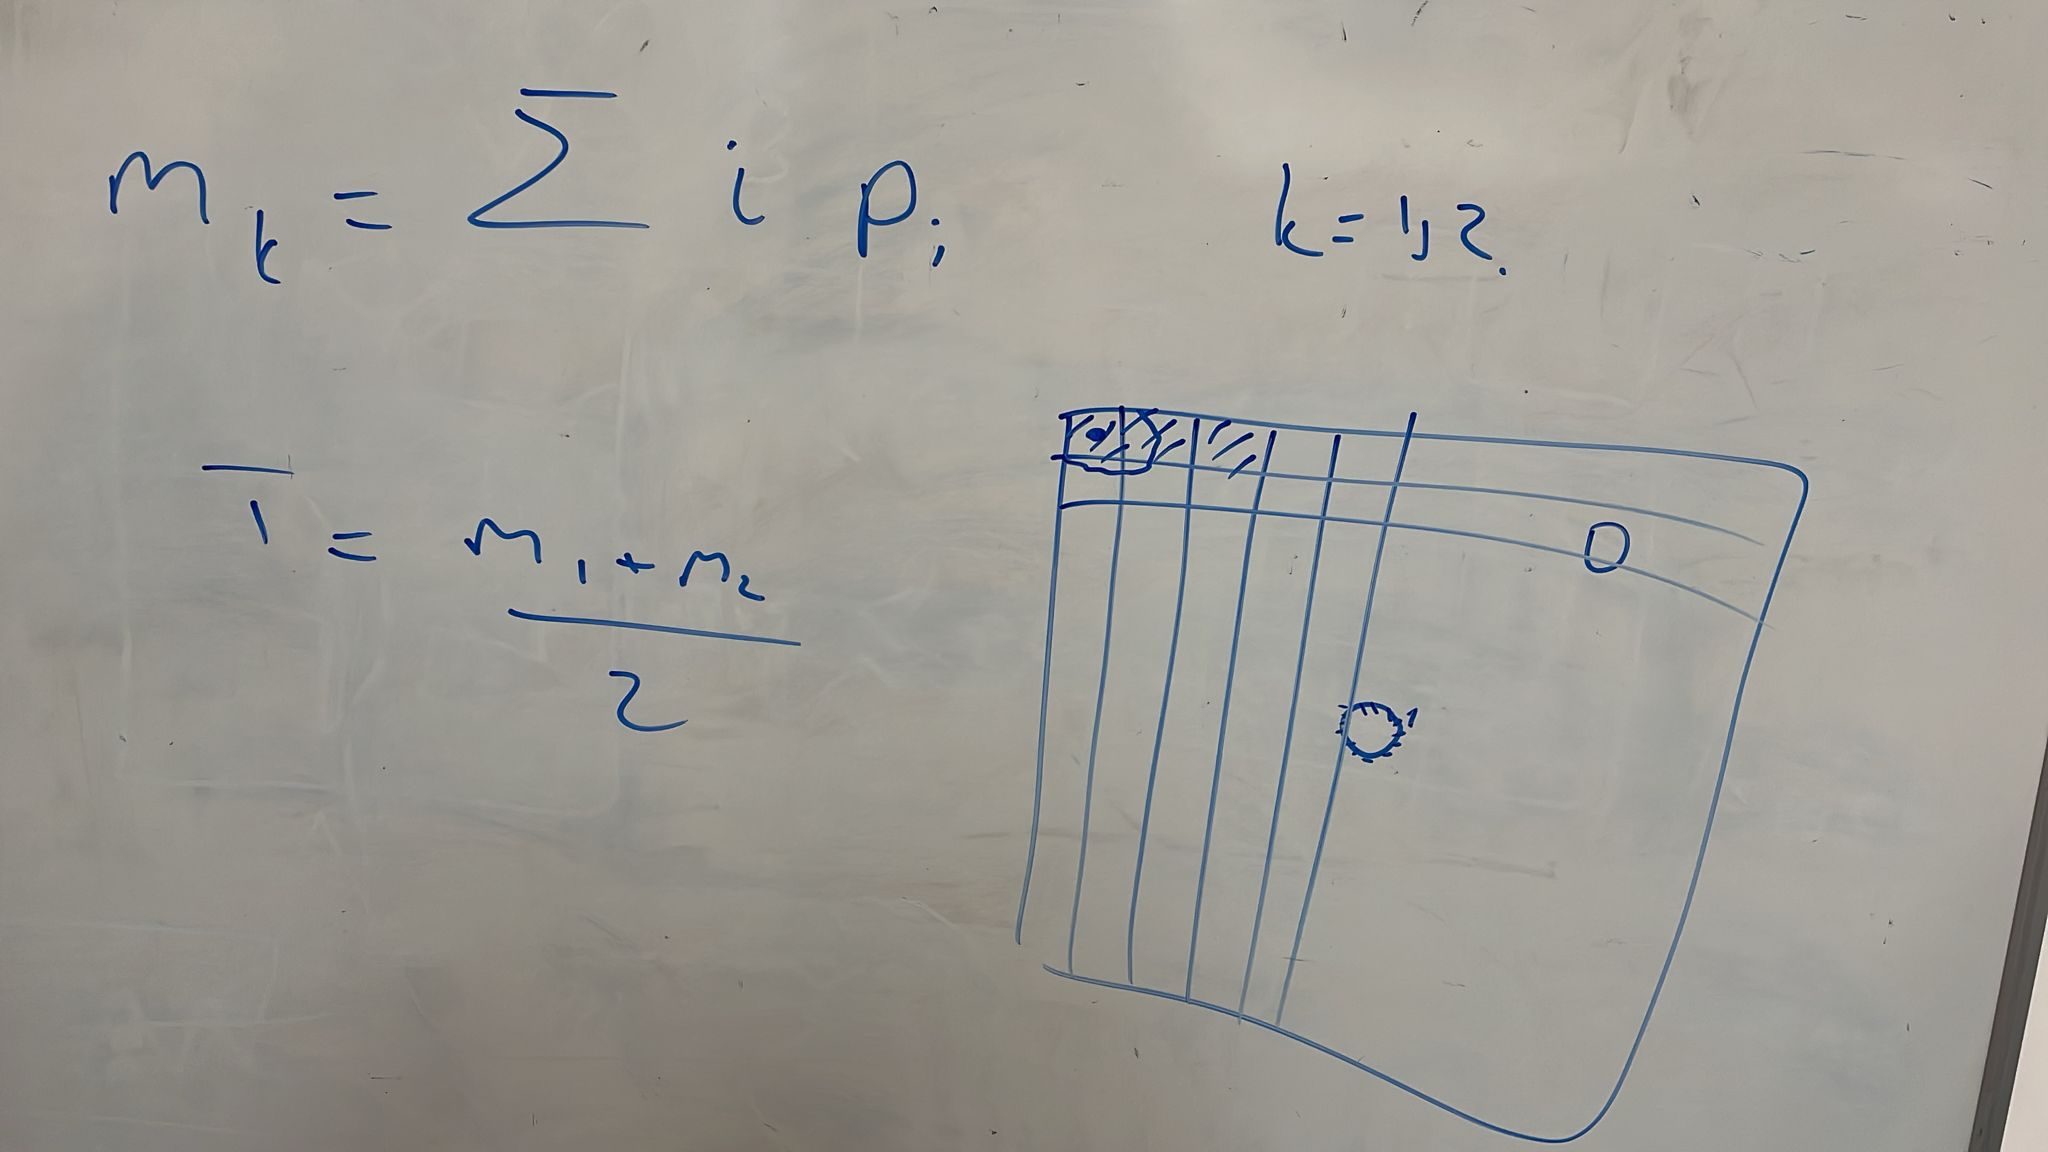 m_k = ∑ i p_i    k = 1, 2.
T̅ = m_1 + m_2
2